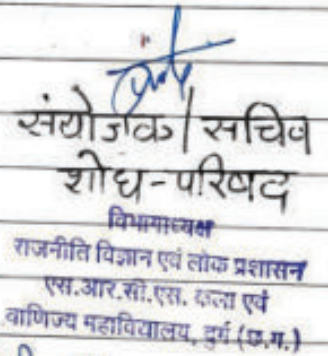 संयोजक / सचिव
शोध-परिषद
विभागाध्यक्ष
राजनीति विज्ञान एवं लोक प्रशासन
एस.आर.सी.एस. कला एवं
वाणिज्य महाविद्यालय, दुर्ग (छ.ग.)